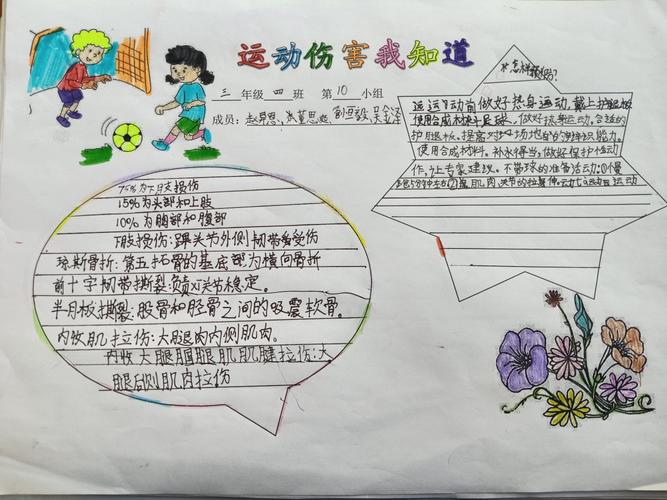 运动伤害我知道
三 年级 四 班 第 10 小组
成员：
75%为下肢损伤
15%为头部和上肢
10%为胸部和腹部
下肢损伤：踝关节外侧韧带受伤
琼斯骨折：第五拓骨的基底部为横向骨折
前十字韧带撕裂：负责对关节稳定。
半月板撕裂：股骨和胫骨之间的吸震软骨。
内收肌拉伤：大腿内内侧肌肉。
内收大腿腘腿肌肌腱拉伤：大
腿后侧肌肉拉伤
怎样预防？
运动前做好热身运动，戴上护腿板
使用合成材料足球，做好热身运动，合适的
护腿板。提高对场地的能力。
使用合成材料。补水得当，做好保护性动
作，让专家建议。不带球的准备活动：①慢
肌肉关节的拉伸运动